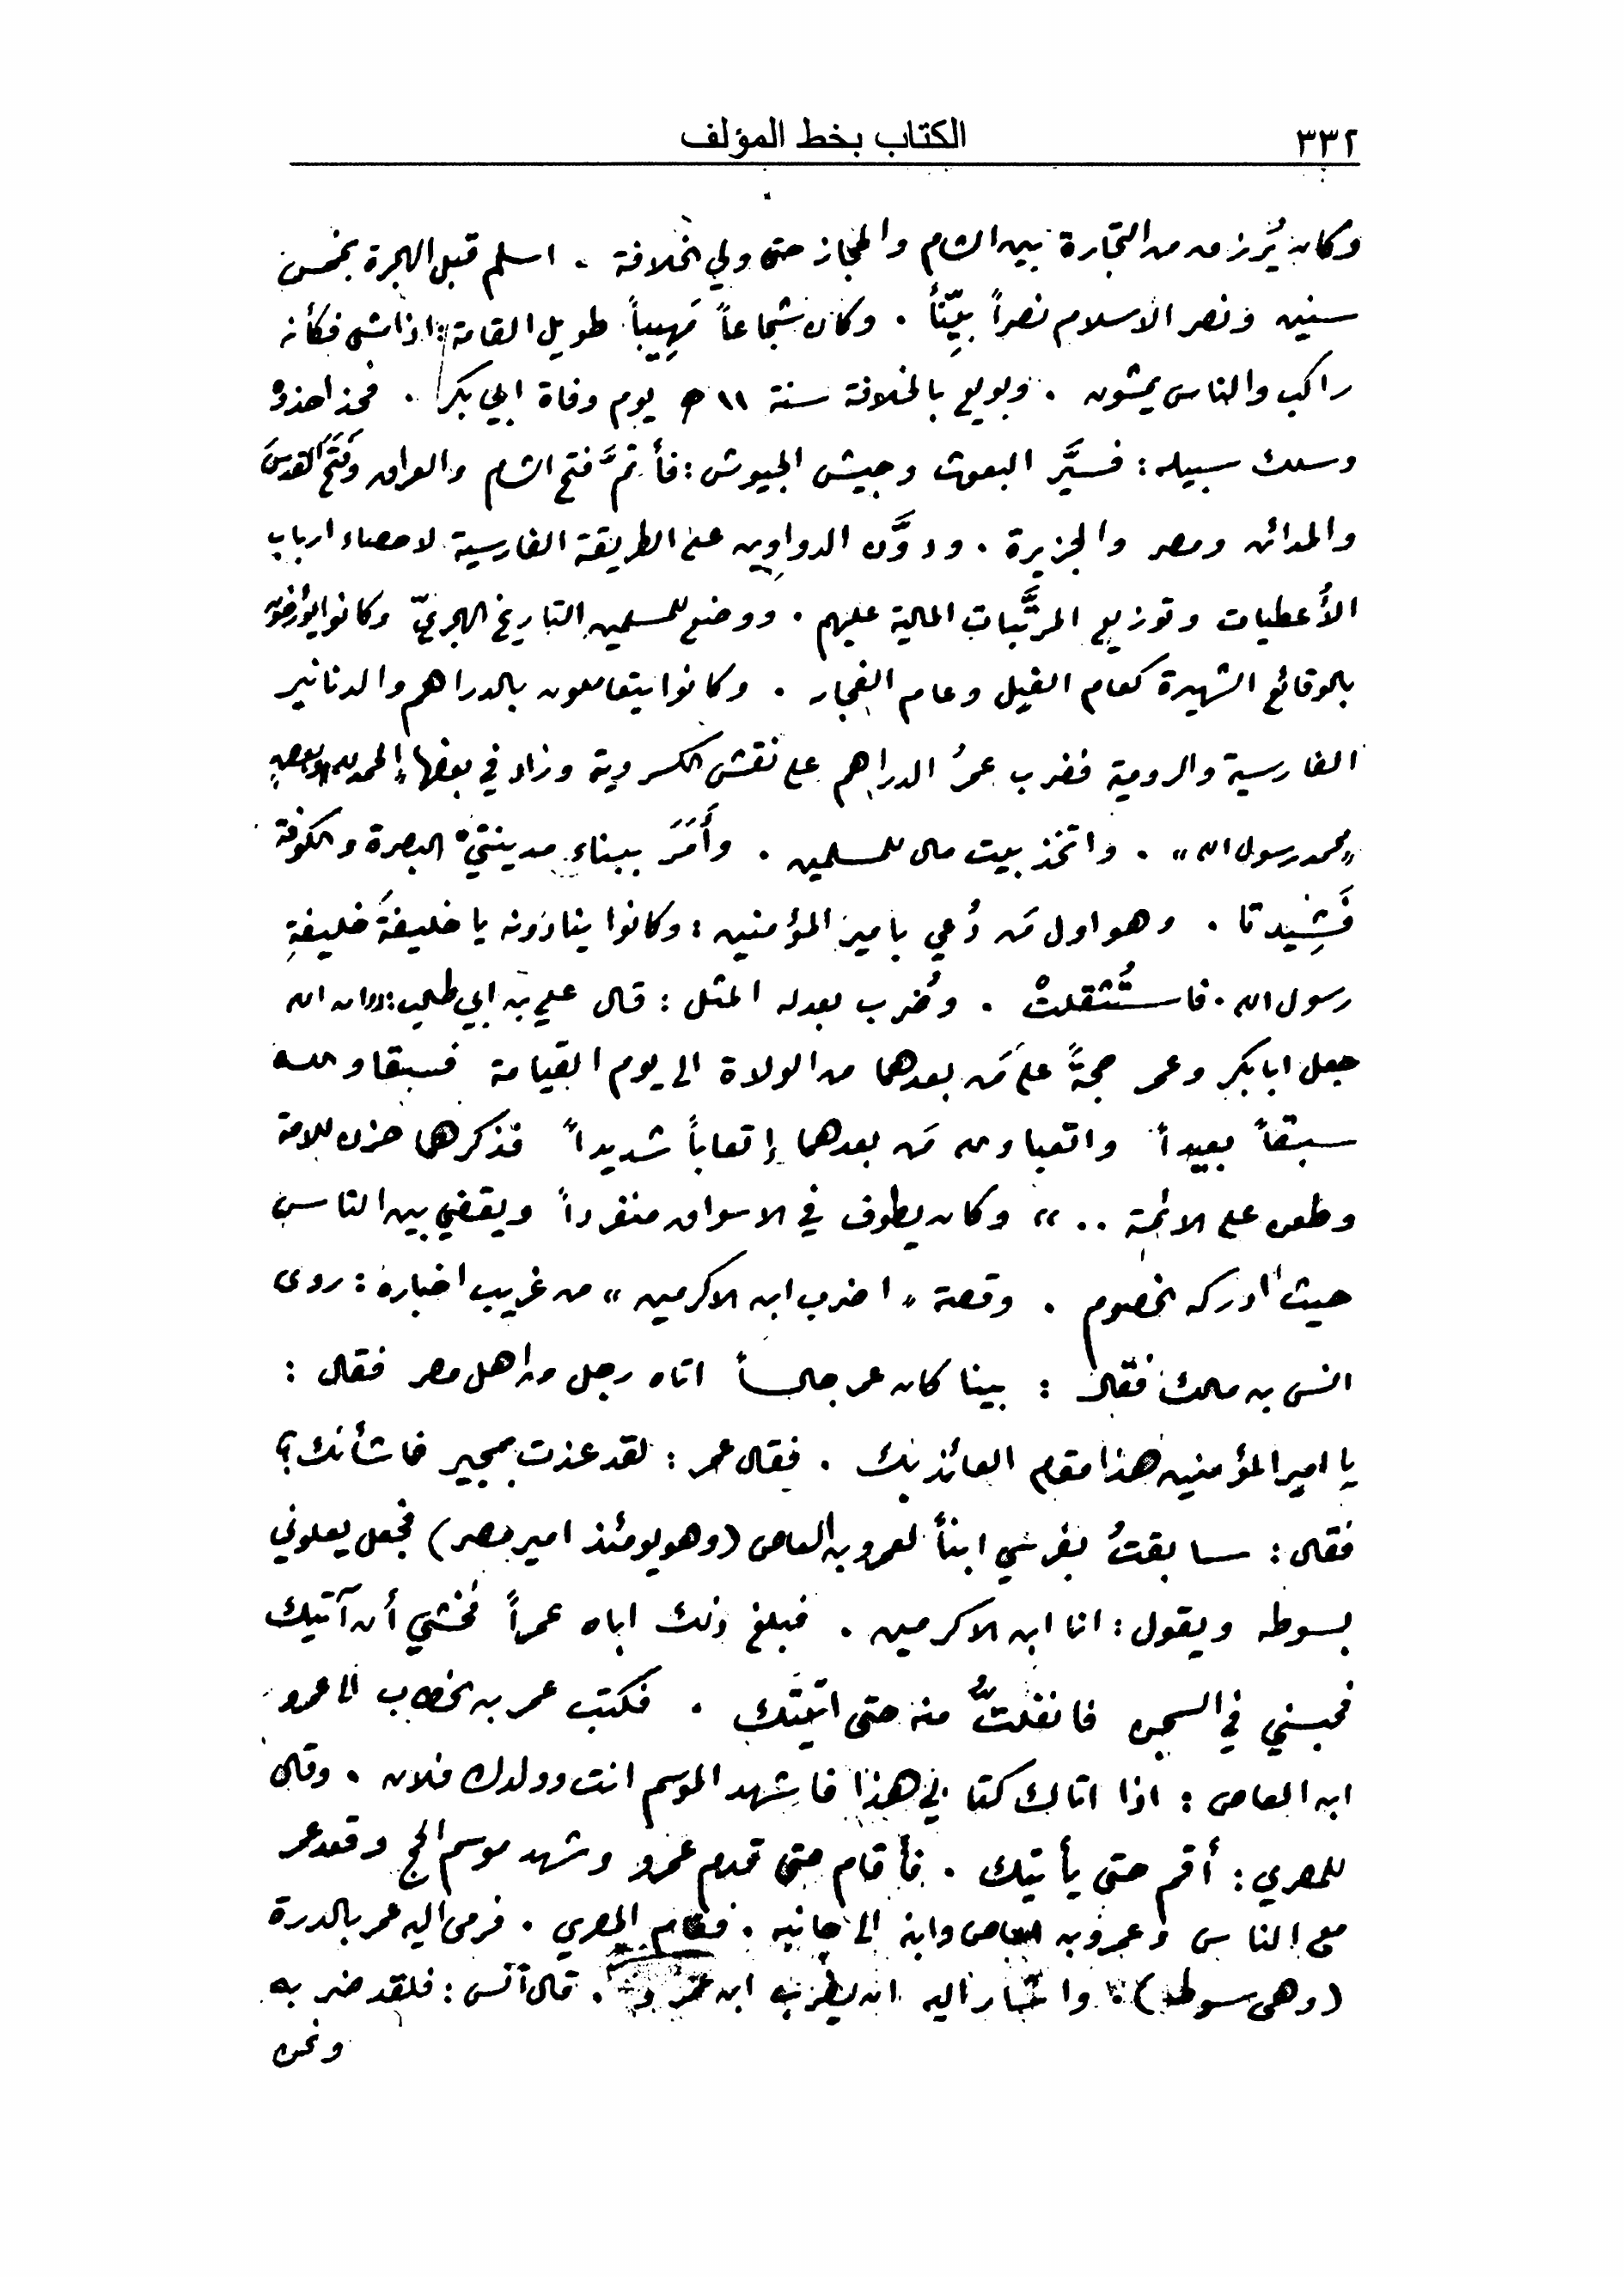 ٣٣٢ الكتاب بخط المؤلف
وكان يُرزق من التجارة بين الشام والحجاز حتى ولي الخلافة . اسلم قبل الهجرة بخمس
سنين ونصر الاسلام نصراً بيِّناً . وكان شجاعاً مَهِيباً طويل القامة : اذا مشى فكأنه
راكب والناس يمشون . وبويع بالخلافة سنة ١١ هـ يوم وفاة ابي بكر . فحذا حذوه
وسلك سبيله : فسيَّر البعوث وجيش الجيوش : فأتمَّ فتح الشام والعراق وفَتَحَ القدسَ
والمدائن ومصر والجزيرة . ودوَّن الدواوين على الطريقة الفارسية لاحصاء ارباب
الأعطيات وتوزيع المرتَّبات المالية عليهم . ووضع للمسلمين التاريخ الهجريّ وكانوا يؤرخون
بالوقائع الشهيرة كعام الفيل وعام الفجار . وكانوا يتعاملون بالدراهم والدنانير
الفارسية والرومية فضرب عمرُ الدراهم على نقش الكسروية وزاد في بعضها "الحمد لله" وبعضها
"محمد رسول الله" . واتخذ بيت مال للمسلمين . وأَمَرَ ببناء مدينتيْ البصرة والكوفة
فَشِيدتا . وهو اول مَن دُعي بامير المؤمنين : وكانوا ينادونه يا خليفةَ خليفةِ
رسول الله . فاستُثقلتْ . وضُرب بعدله المثل : قال علي بن ابي طالب : "ان الله
جعل ابا بكر وعمر حجةً على مَن بعدهما من الولاة الى يوم القيامة فسبقا والله
سبقاً بعيداً واتعبا والله مَن بعدهما إتعاباً شديداً فذكرهما حزن للامة
وطعن على الائمة .." وكان يطوف في الاسواق منفرداً ويقضي بين الناس
حيث ادركه الخصوم . وقصة "اضرب ابن الاكرمين" من غريب اخباره : روى
انس بن مالك فقال : بينا كان عمر جالساً اتاه رجل من اهل مصر فقال :
يا امير المؤمنين هذا مقام العائذ بك . فقال عمر : لقد عذت بمجير فما شأنك ؟
فقال : سابقتُ بفرسي ابناً لعمرو بن العاص (وهو يومئذ امير مصر) فجعل يعلوني
بسوطه ويقول : انا ابن الاكرمين . فبلغ ذلك اباه عمراً فخشي أن آتيك
فحبسني في السجن فانفلتُّ منه حتى اتيتك . فكتب عمر بن الخطاب الى عمرو
ابن العاص : اذا اتاك كتابي هذا فاشهد الموسم انت وولدك فلان . وقال
للمصري : أقم حتى يأتيك . فأقام حتى قدم عمرو وشهد موسم الحج وقعد عمر
مع الناس وعمرو بن العاص وابنه الى جانبه . فقام المصري . فرمى اليه عمر بالدرة
(وهي سوطه) . واشار اليه ان يضرب ابن عمرو . قال أنس : فلقد ضربه
ونحن